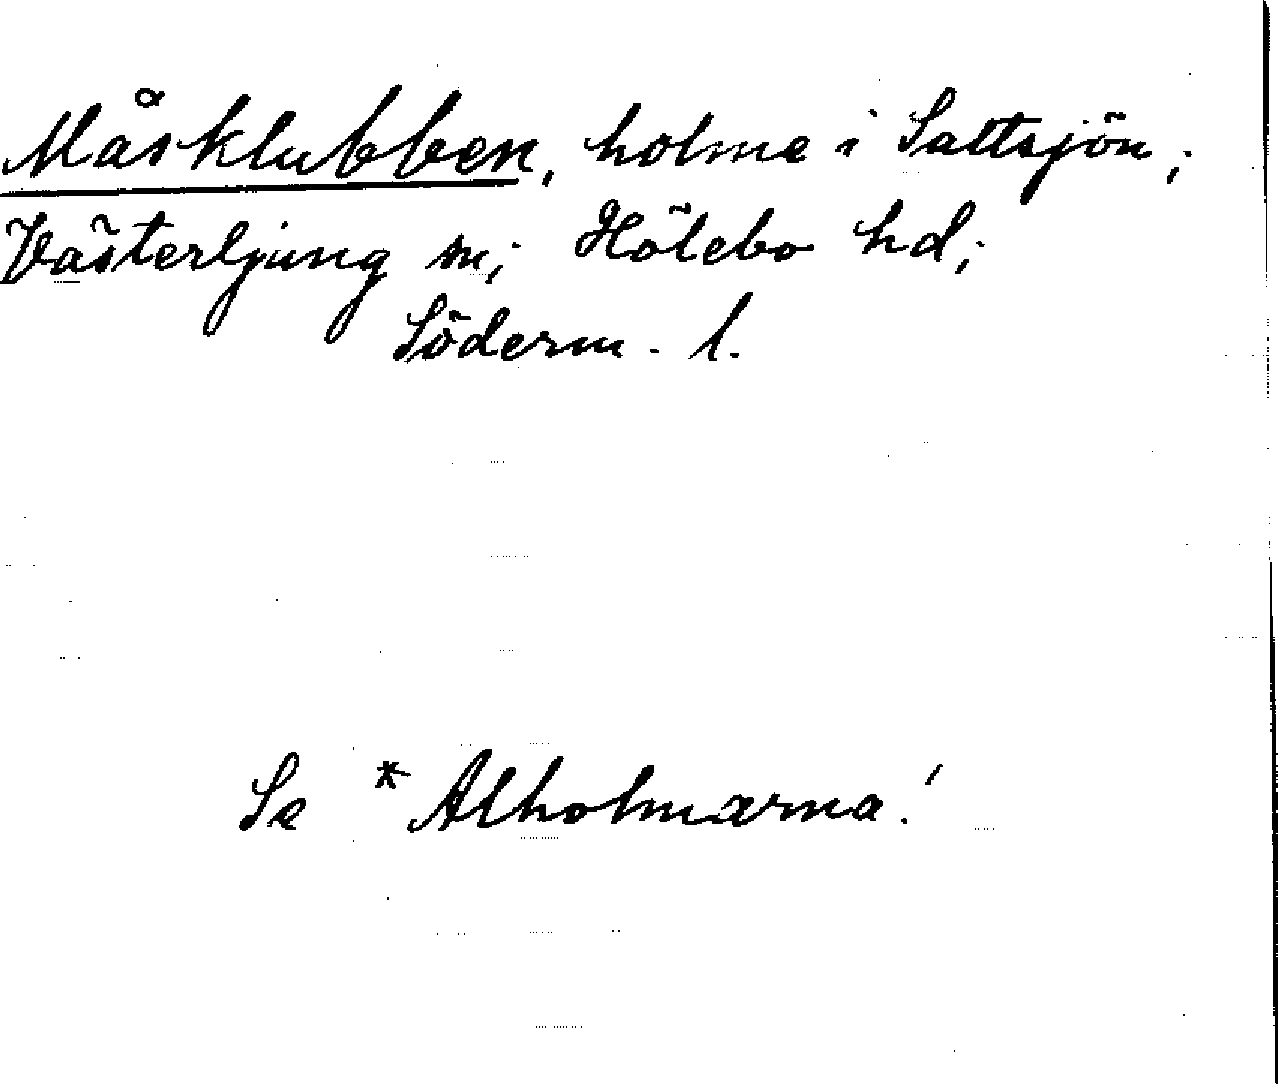 Måsklubben, holme i Saltsjön;
Västerljung sn; Hölebo hd;
Söderm. l.
Se *Alholmarna!